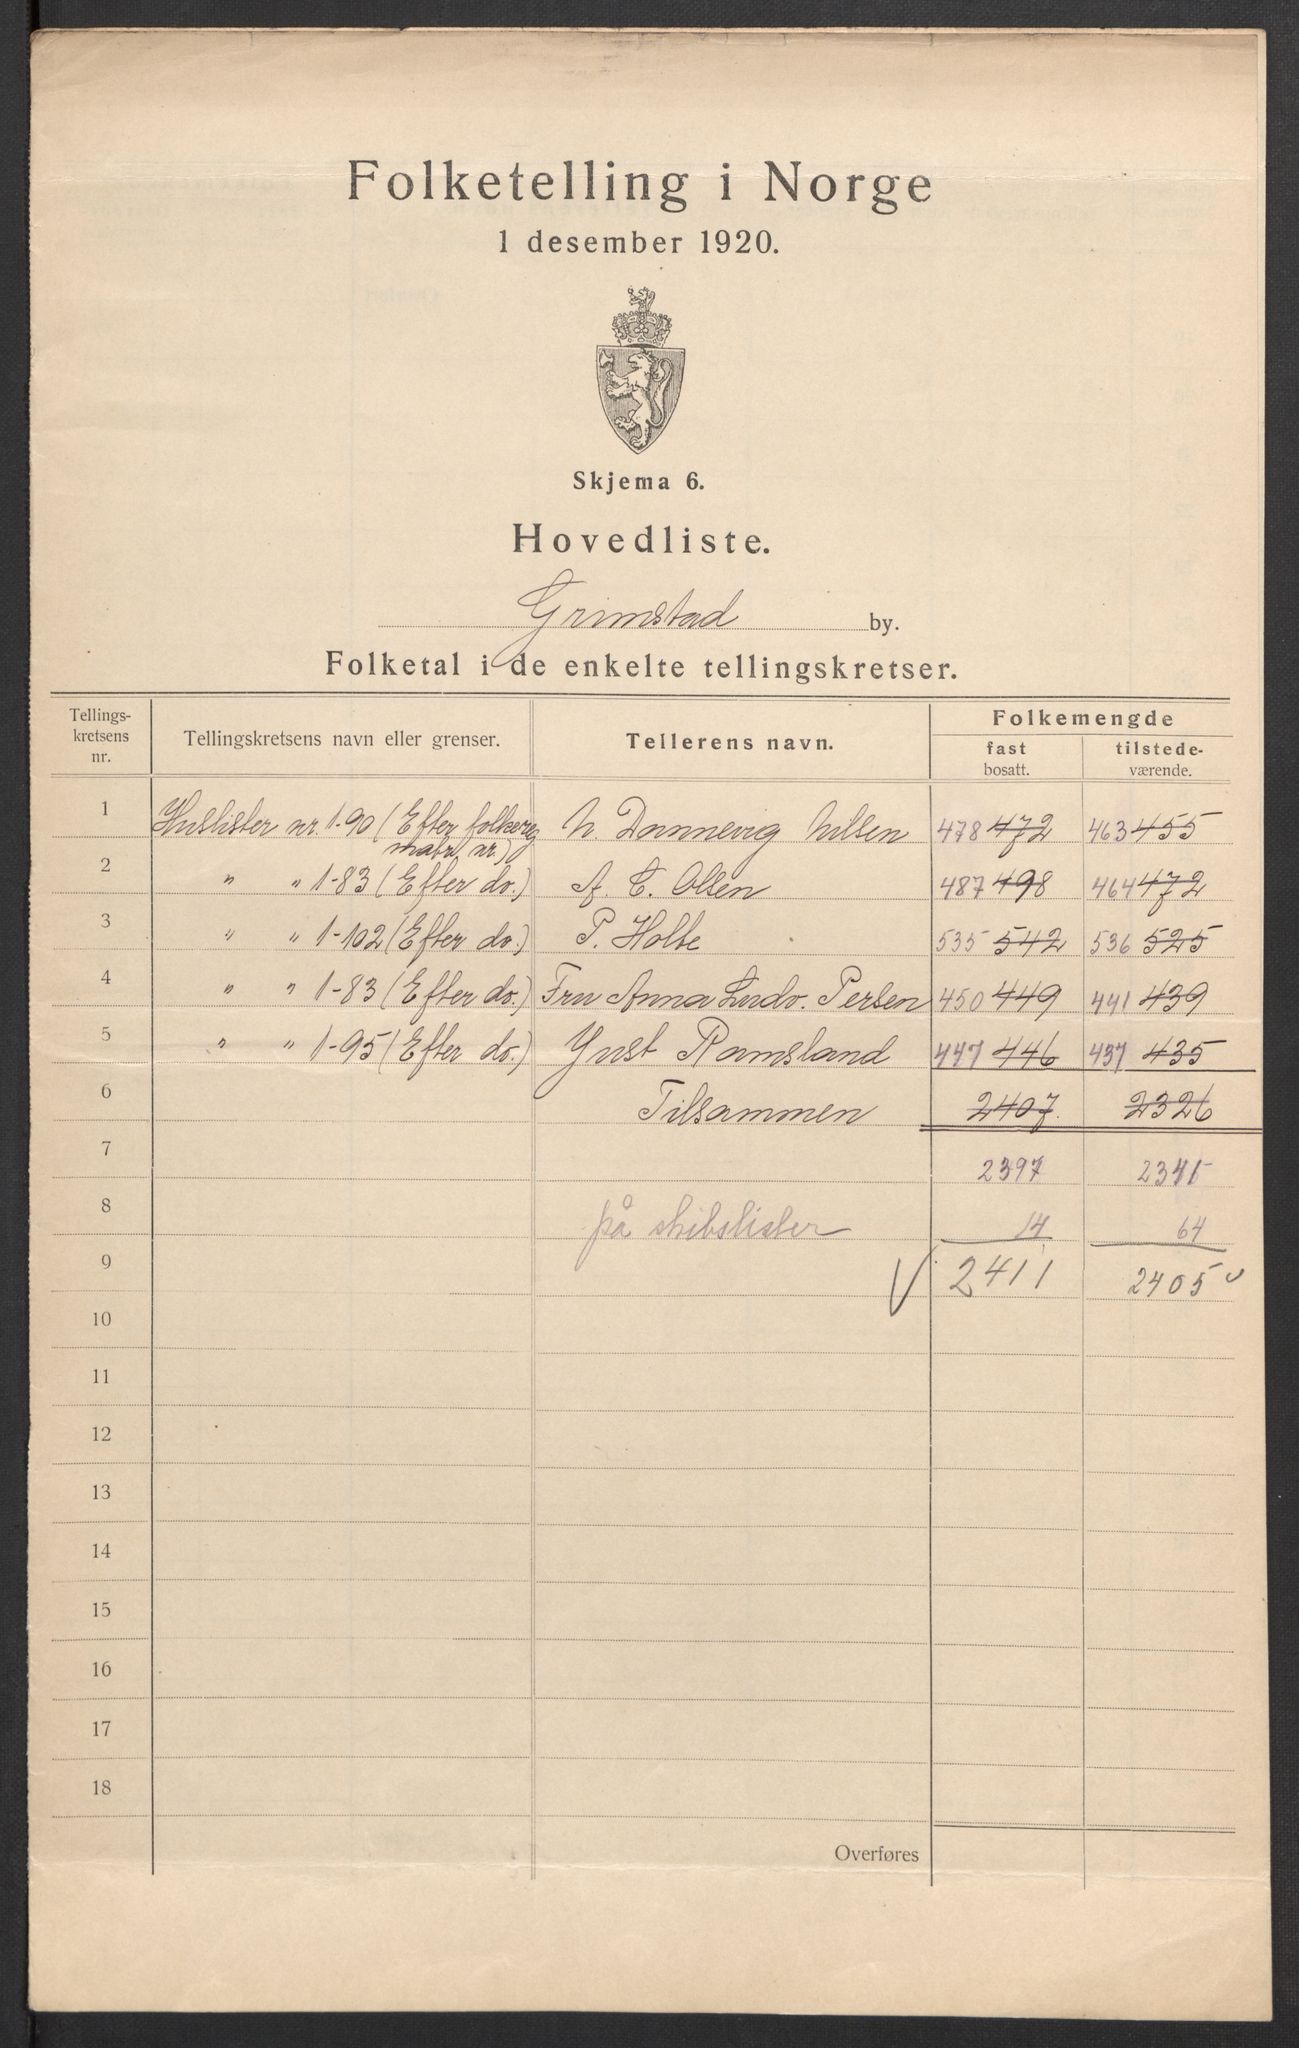 Folketelling i Norge
1 desember 1920.
Skjema 6.
Hovedliste.
Grimstad by.
Folketal i de enkelte tellingskretser.
Tellings-
kretsens
nr.
Tellingskretsens navn eller grenser.
Tellerens navn.
Folkemengde
fast
bosatt.
tilstede-
værende.
1 Huslister nr. 1-90 (Efter folkereg N. Dannevig Nilsen 478 472 463 455
matr. nr.)
2 " " 1-83 (Efter do.) A. C. Olsen 487 498 464 472
3 " " 1-102 (Efter do.) P. Holte 535 542 536 525
4 " " 1-83 (Efter do.) Fru Anna Ludv. Persen 450 449 441 439
5 " " 1-95 (Efter do.) Just Ramsland 447 446 437 435
6 Tilsammen 2407 2326
7 2397 2341
8 på skibslister 14 64
9 2411 2405
10
11
12
13
14
15
16
17
18
Overføres